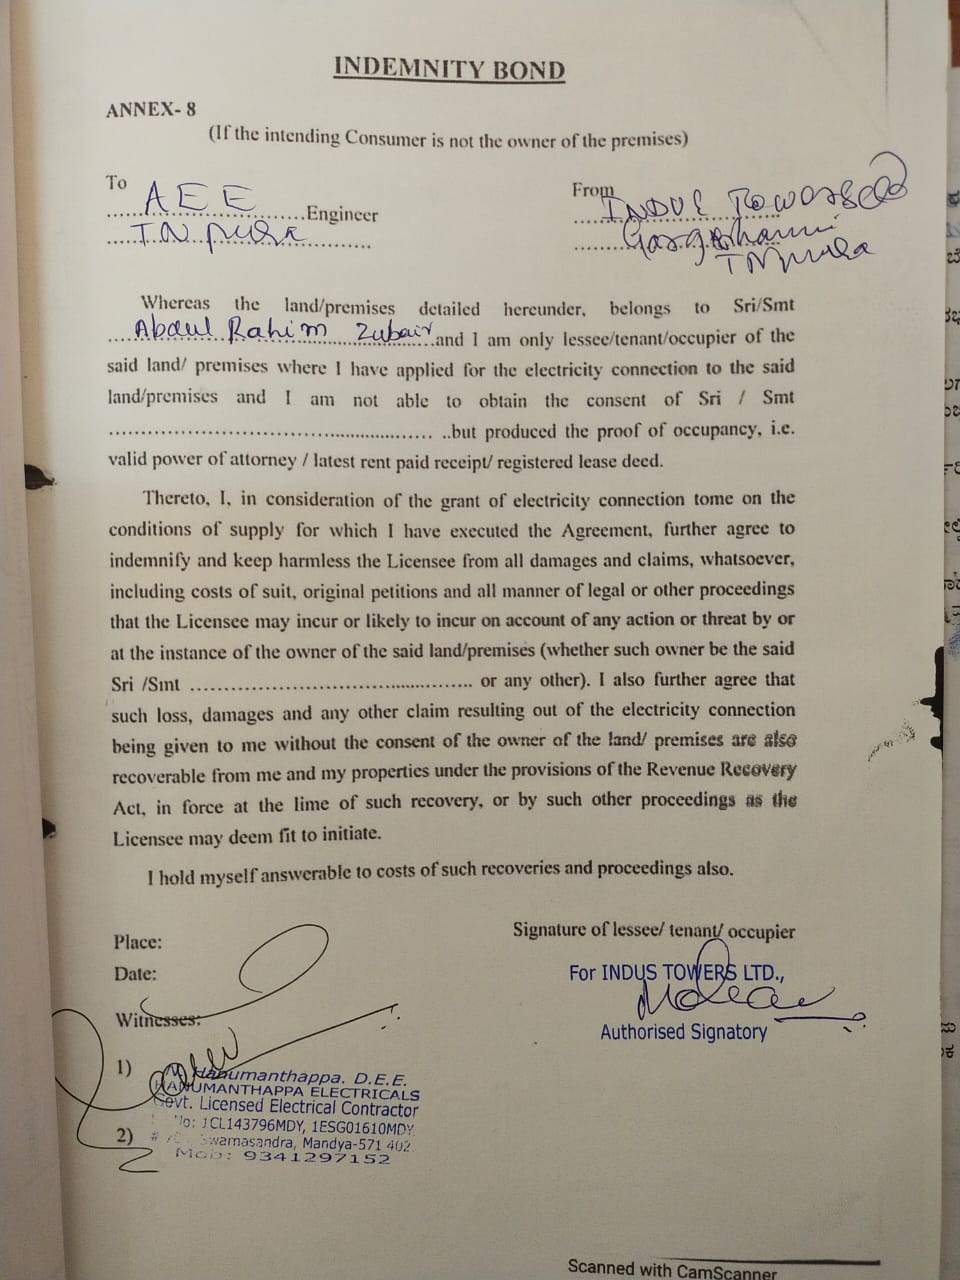 INDEMNITY BOND
ANNEX- 8
(If the intending Consumer is not the owner of the premises)
To
AEE
..........................Engineer
T.N pura
From
INDUS Towers
TNpura
Whereas the land/premises detailed hereunder, belongs to Sri/Smt
Abdul Rahim Zubair and I am only lessee/tenant/occupier of the
said land/ premises where I have applied for the electricity connection to the said
land/premises and I am not able to obtain the consent of Sri / Smt
.................................................... ..but produced the proof of occupancy, i.e.
valid power of attorney / latest rent paid receipt/ registered lease deed.
Thereto, I, in consideration of the grant of electricity connection tome on the
conditions of supply for which I have executed the Agreement, further agree to
indemnify and keep harmless the Licensee from all damages and claims, whatsoever,
including costs of suit, original petitions and all manner of legal or other proceedings
that the Licensee may incur or likely to incur on account of any action or threat by or
at the instance of the owner of the said land/premises (whether such owner be the said
Sri /Smt ............................................... or any other). I also further agree that
such loss, damages and any other claim resulting out of the electricity connection
being given to me without the consent of the owner of the land/ premises are also
recoverable from me and my properties under the provisions of the Revenue Recovery
Act, in force at the lime of such recovery, or by such other proceedings as the
Licensee may deem fit to initiate.
I hold myself answerable to costs of such recoveries and proceedings also.
Signature of lessee/ tenant/ occupier
Place:
Date:
For INDUS TOWERS LTD.,
Authorised Signatory
Witnesses:
1)
Hanumanthappa. D.E.E.
HANUMANTHAPPA ELECTRICALS
Govt. Licensed Electrical Contractor
No: 1CL143796MDY, 1ESG01610MDY
2)
Swarnasandra, Mandya-571 402
Mob: 9341297152
Scanned with CamScanner